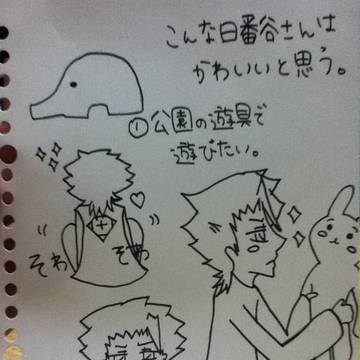 こんな日番谷さんは
かわいいと思う。
①公園の遊具で
遊びたい。
そわ
そわ